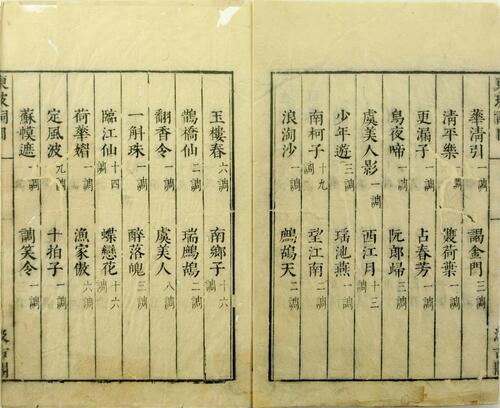 華清引一調 謁金門三調
清平樂一調 雙荷葉一調
更漏子一調 占春芳一調
烏夜啼一調 阮郎歸三調
虞美人影一調 西江月十三調
少年遊三調 瑤池燕一調
南柯子十九調 望江南二調
浪淘沙一調 鷓鴣天二調
玉樓春六調 南鄉子十六調
鵲橋仙二調 瑞鷓鴣二調
翻香令一調 虞美人八調
一斛珠一調 醉落魄三調
臨江仙十四調 蝶戀花十六調
荷華媚一調 漁家傲六調
定風波九調 十拍子一調
蘇幙遮一調 調笑令一調
東坡詞目